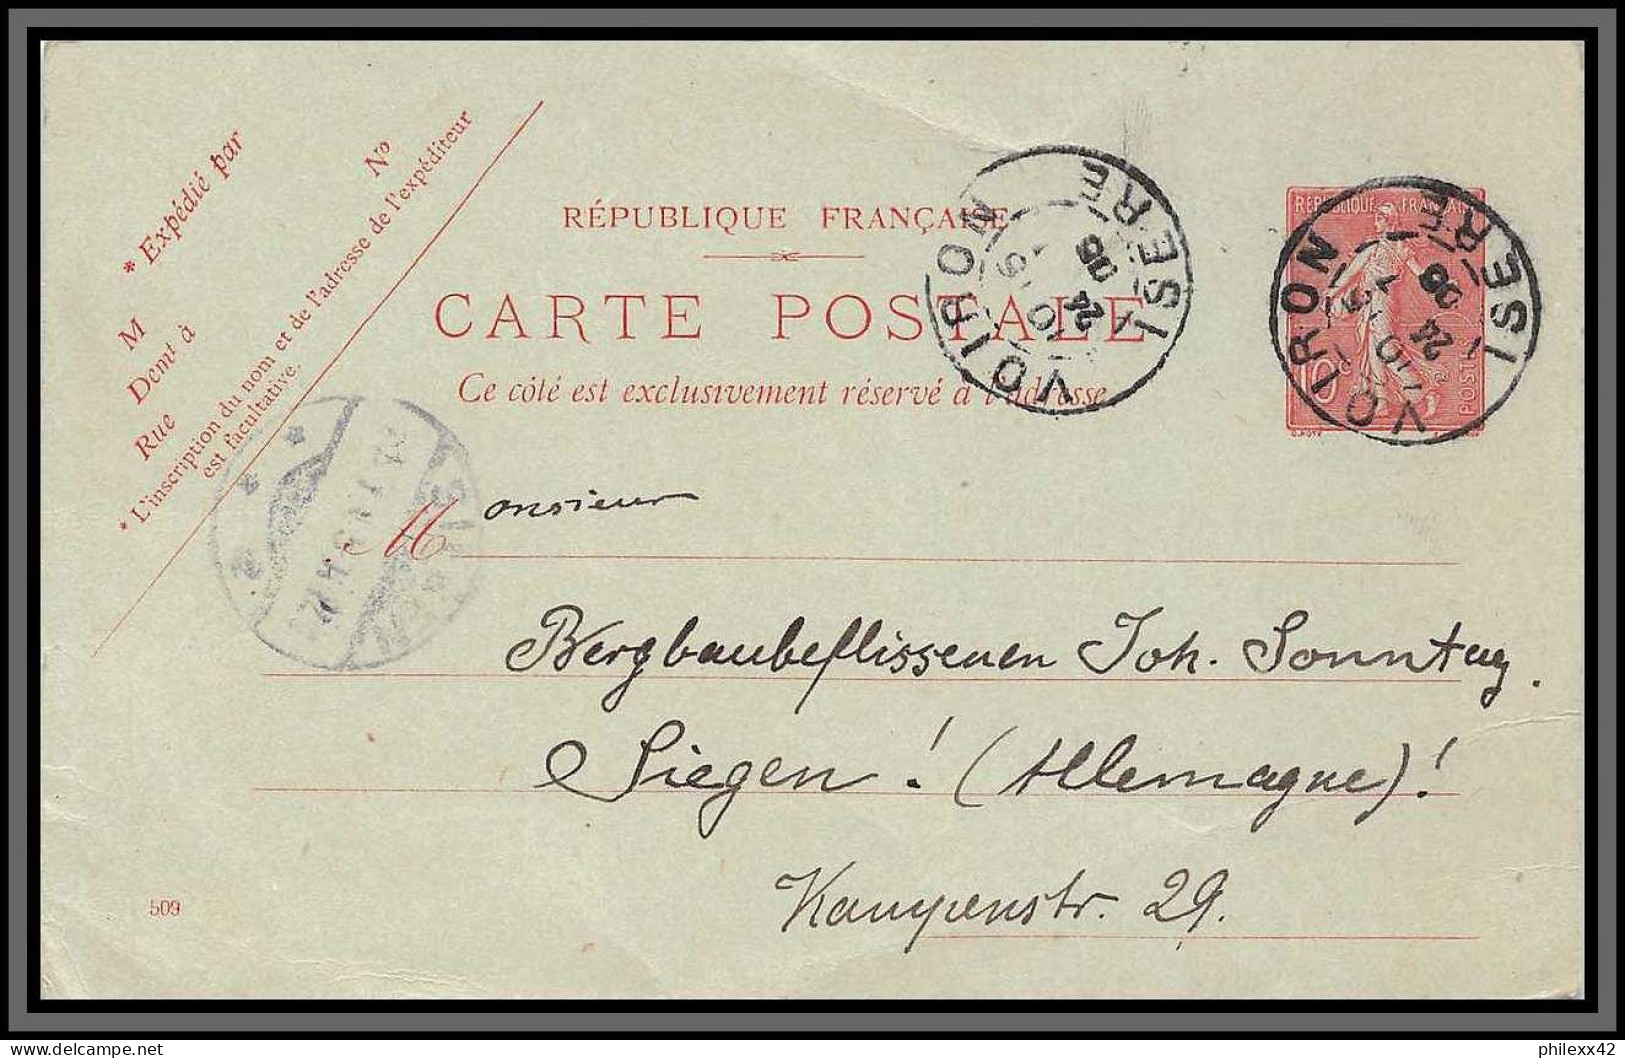 * Expédié par
M
Demt à
Rue
N°
* L'inscription du nom et de l'adresse de l'expéditeur
est facultative.
RÉPUBLIQUE FRANÇAISE
CARTE POSTALE
Ce côté est exclusivement réservé à l'adresse
VOIRON
ISERE
24
RÉPUBLIQUE FRANÇAISE
10
POSTES
VOIRON
ISERE
24
Monsieur
Bergbaubeflissenen Joh. Sonntag.
Siegen! (Allemagne)!
Kampenstr. 29.
509
philexx42